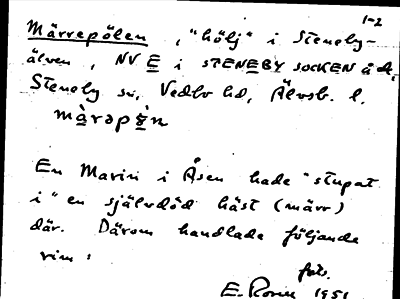 1-2
Märrepölen, "hölj" i Steneby-
älven, NV E i STENEBY SOCKEN å d,
Steneby sn, Vedbo hd, Älvsb. l.
En Marin i Åsen hade "stupat
i" en självdöd häst (märr)
där. Därom handlade följande
rim:
forts.
E. Rosell 1951